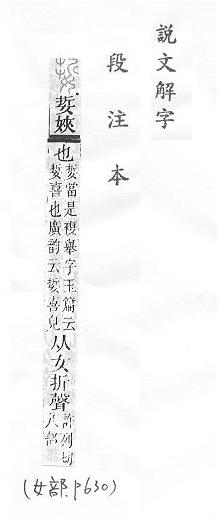 說文解字
段注本
娎㛍也
娎當是複舉字玉篇云
娎喜也廣韵云娎喜皃
从女折聲
許列切
八部
(女部.p630)